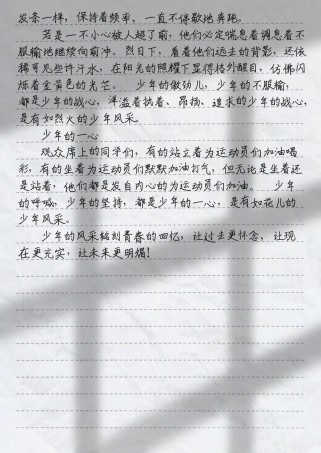 发条一样，保持着频率，一直不停歇地奔跑。
若是一不小心被人超了前，他们必定喘息着调息着不
服输地继续向前冲。烈日下，看着他们远去的背影，还依
稀可见些许汗水，在阳光的照耀下显得格外醒目，仿佛闪
烁着金黄色的光芒。 少年的傲劲儿，少年的不服输，
都是少年的战心，洋溢着执着、昂扬、追求的少年的战心，
是有如烈火的少年风采。
少年的一心
观众席上的同学们，有的站立着为运动员们加油喝
彩，有的坐着为运动员们默默加油打气，但无论是坐着还
是站着，他们都是发自内心的为运动员们加油。 少年
的呼喊，少年的坚持，都是少年的一心，是有如花儿的
少年风采。
少年的风采铭刻青春的回忆，让过去更怀念，让现
在更充实，让未来更明媚！